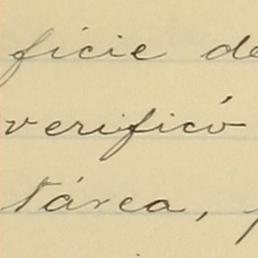 ficie de
verificó
tárea,